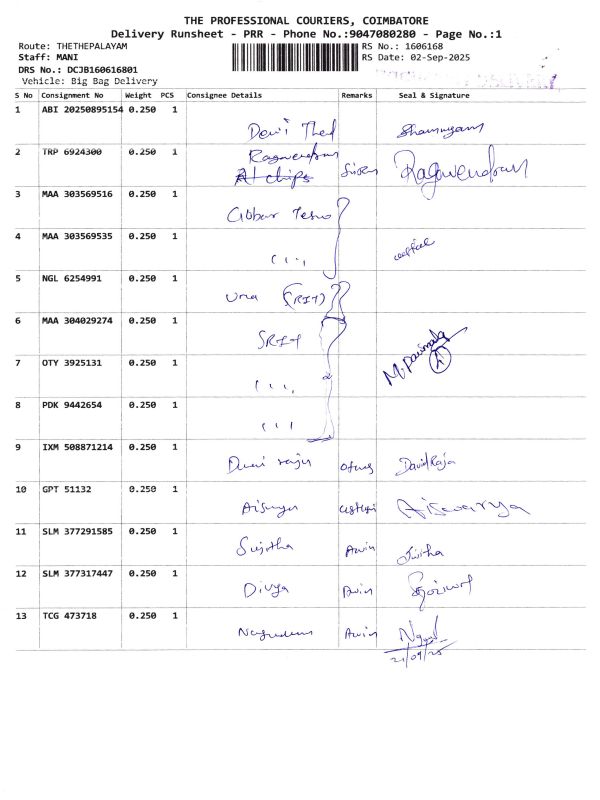 THE PROFESSIONAL COURIERS, COIMBATORE
Delivery Runsheet - PRR - Phone No.:9047080280 - Page No.:1
Route: THETHEPALAYAM RS No.: 1606168
Staff: MANI RS Date: 02-Sep-2025
DRS No.: DCJB160616801
Vehicle: Big Bag Delivery
S No Consignment No Weight PCS Consignee Details Remarks Seal & Signature
1 ABI 20250895154 0.250 1
Devi
2 TRP 6924300 0.250 1
Ragwendran Ragwendran
At chips
3 MAA 303569516 0.250 1
4 MAA 303569535 0.250 1
5 NGL 6254991 0.250 1
Uma (SRIT)
6 MAA 304029274 0.250 1
SRIT
7 OTY 3925131 0.250 1
8 PDK 9442654 0.250 1
9 IXM 508871214 0.250 1
David Raja
10 GPT 51132 0.250 1
Aiswarya
11 SLM 377291585 0.250 1
Sujitha Awin
12 SLM 377317447 0.250 1
Divya Awin
13 TCG 473718 0.250 1
Awin
21/09/25